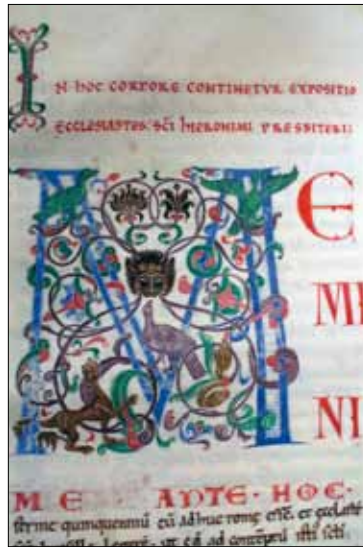 IN HOC CORPORE CONTINETUR EXPOSITIO
ECCLESIASTES. SCI HIERONIMI PRESBITERII
M E
MI
NI
M E ANTE · HOC ·
ferme quinquenniu cu adhuc rome esse. et ecclesiasten
ut ea ad conteptu